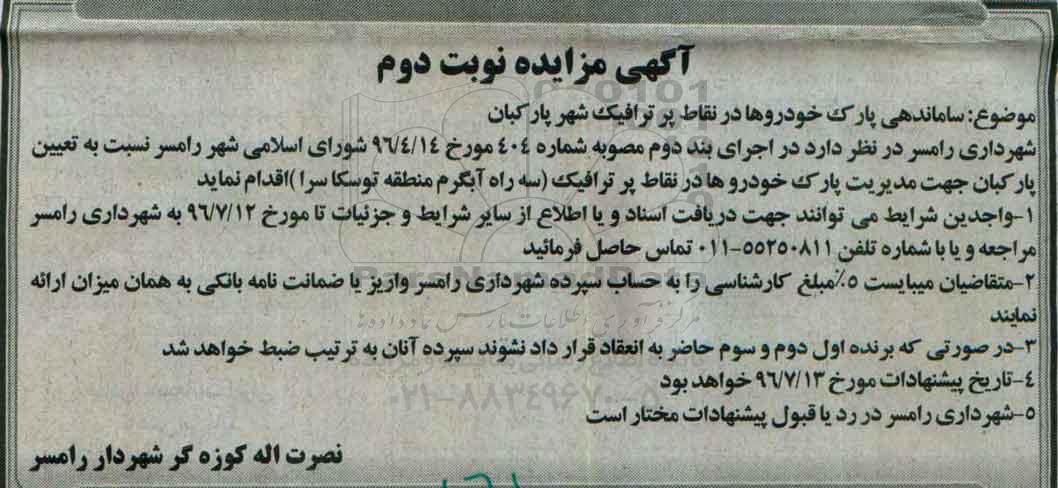 آگهی مزایده نوبت دوم
موضوع: ساماندهی پارک خودروها در نقاط پر ترافیک شهر پارکبان
شهرداری رامسر در نظر دارد در اجرای بند دوم مصوبه شماره ٤٠٤ مورخ ٩٦/٤/١٤ شورای اسلامی شهر رامسر نسبت به تعیین
پارکبان جهت مدیریت پارک خودرو ها در نقاط پر ترافیک (سه راه آبگرم منطقه توسکا سرا )اقدام نماید
١-واجدین شرایط می توانند جهت دریافت اسناد و یا اطلاع از سایر شرایط و جزئیات تا مورخ ٩٦/٧/١٢ به شهرداری رامسر
مراجعه و یا با شماره تلفن ٥٥٢٥٠٨١١-٠١١ تماس حاصل فرمائید
ParsNamadData
٢-متقاضیان میبایست ٥٪مبلغ کارشناسی را به حساب سپرده شهرداری رامسر واریز یا ضمانت نامه بانکی به همان میزان ارائه
نمایند
مرکز فرآوری اطلاعات پارس نماد داده ها
٣-در صورتی که برنده اول دوم و سوم حاضر به انعقاد قرار داد نشوند سپرده آنان به ترتیب ضبط خواهد شد
٤-تاریخ پیشنهادات مورخ ٩٦/٧/١٣ خواهد بود
٠٢١-٨٨٣٤٩٦٧٠-٥
٥-شهرداری رامسر در رد یا قبول پیشنهادات مختار است
نصرت اله کوزه گر شهردار رامسر